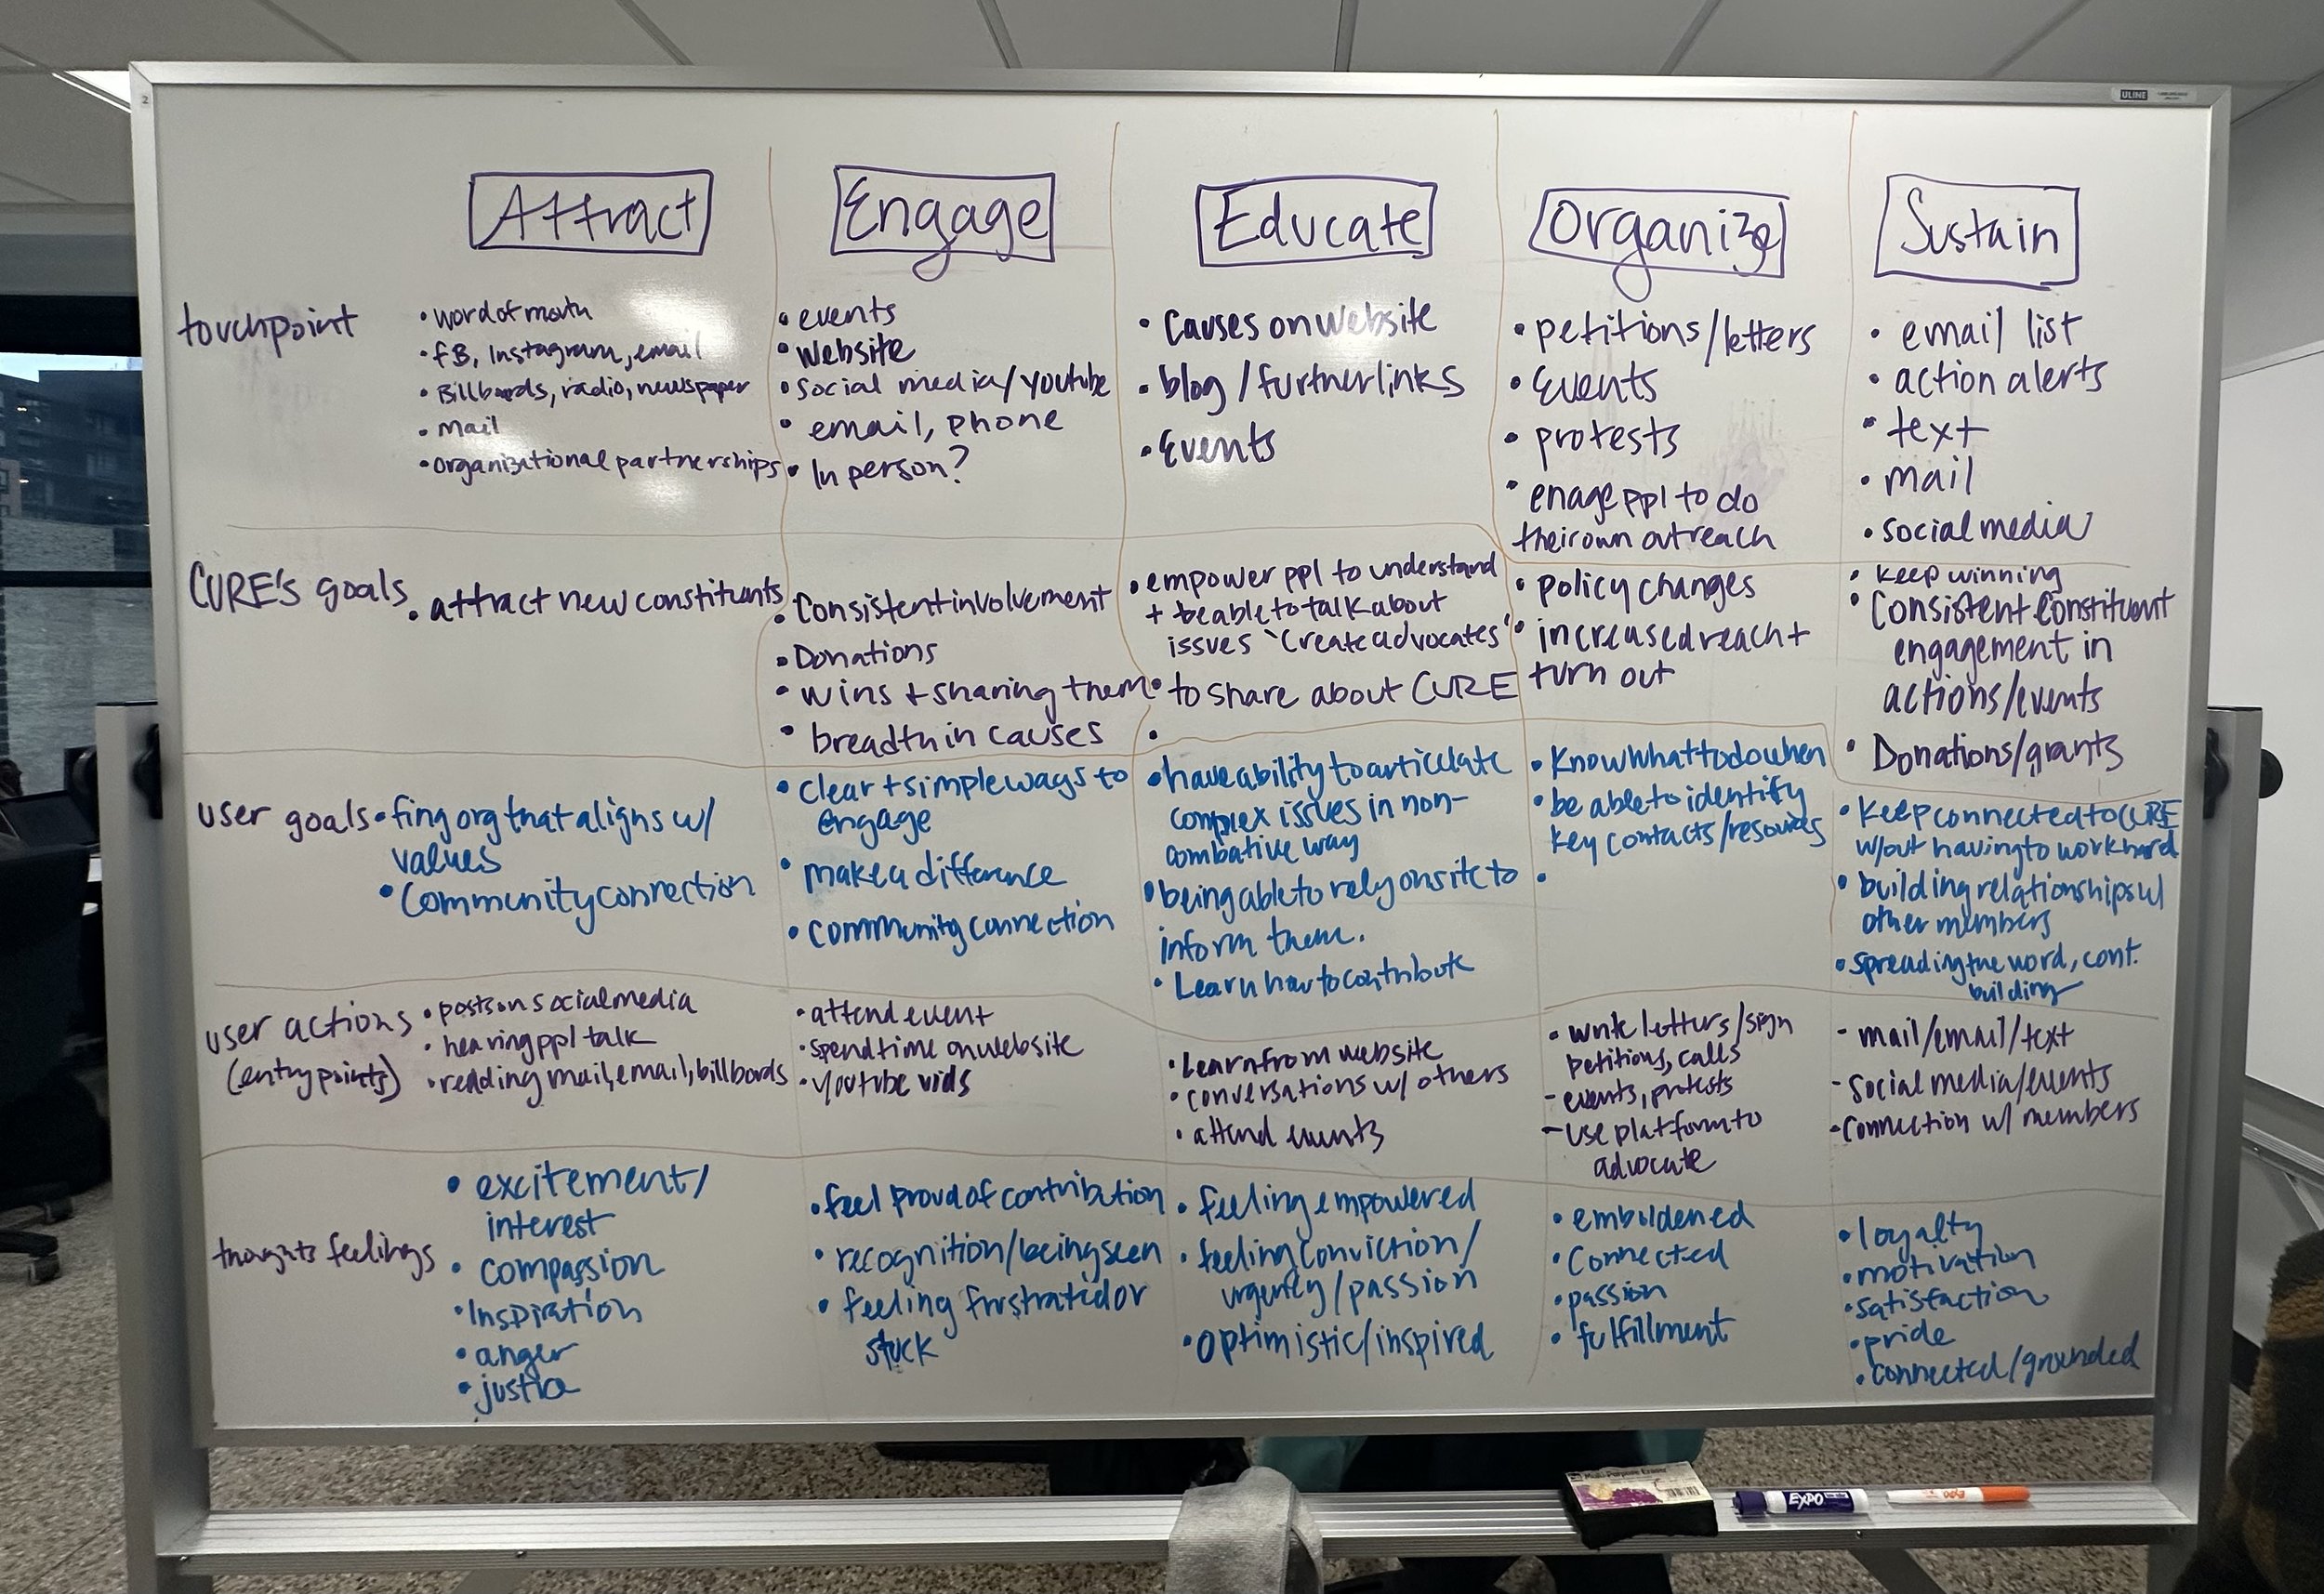 ULINE
2
Attract
Engage
Educate
Organize
Sustain
touchpoint
• word of mouth
• FB, Instagram, email
• Billbords, radio, newspaper
• mail
• organizational partnerships
• events
• Website
• Social media/Youtube
• email, phone
• In person?
• Causes on website
• blog / further links
• Events
• petitions/letters
• Events
• protests
• enage ppl to do
their own outreach
• email list
• action alerts
• text
• mail
• social media
CURE's goals
• attract new constituents
• Consistent involvement
• Donations
• wins + sharing them
• breadth in causes
• empower ppl to understand
+ be able to talk about
issues "create advocates"
• to share about CURE
•
• policy changes
• increased reach +
turn out
• keep winning
• Consistent constituent
engagement in
actions/events
• Donations/grants
user goals
• fing org that aligns w/
values
• Community connection
• clear + simple ways to
engage
• make a difference
• community connection
• have ability to articulate
complex issues in non-
combative way
• being able to rely on site to
inform them.
• Learn how to contribute
• Know what to do when
• be able to identify
key contacts/resources
•
• Keep connected to CURE
w/out having to work hard
• building relationships w/
other members
• spreading the word, cont.
building
user actions
(entry points)
• posts on social media
• hearing ppl talk
• reading mail, email, billbords
• attend event
• spend time on website
• Youtube vids
• Learn from website
• conversations w/ others
• attend events
• write letters/sign
petitions, calls
- events, protests
- use platform to
advocate
- mail/email/text
- Social media/events
- Connection w/ members
thoughts feelings
• excitement/
interest
• compassion
• Inspiration
• anger
• justice
• feel proud of contribution
• recognition/being seen
• feeling frustrated or
stuck
• feeling empowered
• feeling conviction/
urgency/passion
• optimistic/inspired
• emboldened
• Connected
• passion
• fulfillment
• loyalty
• motivation
• satisfaction
• pride
• connected/grounded
EXPO
EXPO